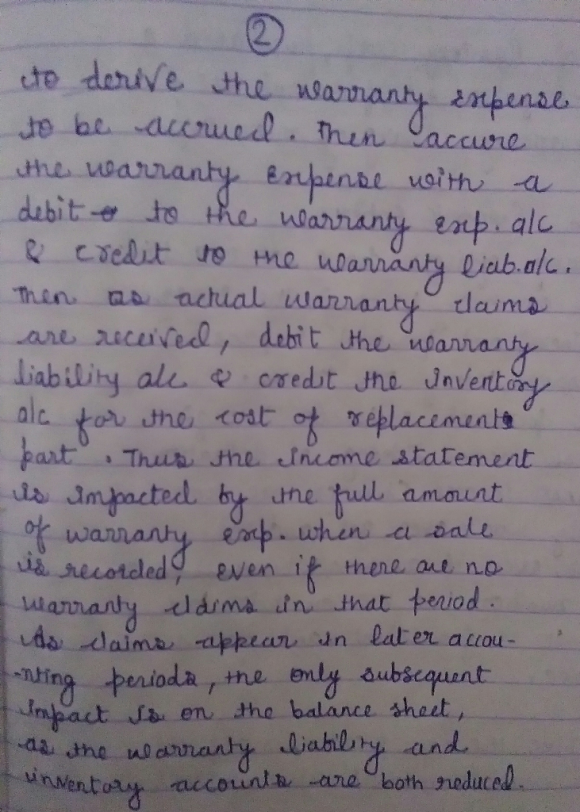 2
to derive the warranty expense
to be accrued. Then accure
the warranty Expense with a
debit to the warranty exp. a/c
& credit to the warranty liab. a/c.
Then as actual warranty claims
are received, debit the warranty
liability a/c & credit the Inventory
a/c for the cost of replacement
part. Thus the income statement
is impacted by the full amount
of warranty exp. when a sale
is recorded, even if there are no
warranty claims in that period.
As claims appear in later accou-
-nting periods, the only subsequent
impact is on the balance sheet,
as the warranty liability and
inventory accounts are both reduced.